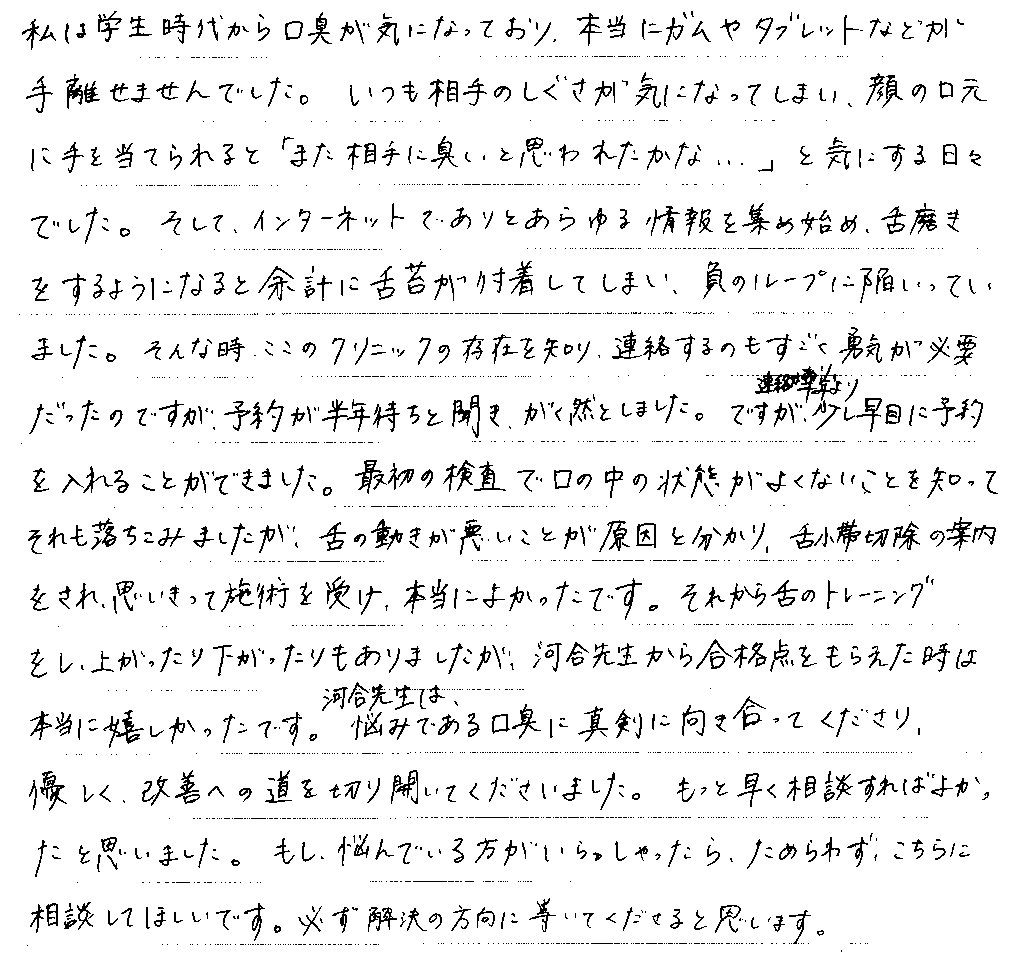 私は学生時代から口臭が気になっており、本当にガムやタブレットなどが
手離せませんでした。 いつも相手のしぐさが気になってしまい、顔の口元
に手を当てられると「また相手に臭いと思われたかな...」と気にする日々
でした。そして、インターネットでありとあらゆる情報を集め始め、舌磨き
をするようになると余計に舌苔が付着してしまい、負のループに陥いってい
ました。そんな時、ここのクリニックの存在を知り、連絡するのもすごく勇気が必要
だったのですが、予約が半年待ちと聞き、がく然としました。ですが、少し早目に予約
を入れることができました。最初の検査で口の中の状態がよくないことを知って
それも落ちこみましたが、舌の動きが悪いことが原因と分かり、舌小帯切除の案内
をされ、思いきって施術を受け、本当によかったです。それから舌のトレーニング
をし、上がったり下がったりもありましたが、河合先生から合格点をもらえた時は
本当に嬉しかったです。河合先生は、悩みである口臭に真剣に向き合ってくださり、
優しく、改善への道を切り開いてくださいました。 もっと早く相談すればよかっ
たと思いました。 もし、悩んでいる方がいらっしゃったら、ためらわず、こちらに
相談してほしいです。必ず解決の方向に導いてくださると思います。